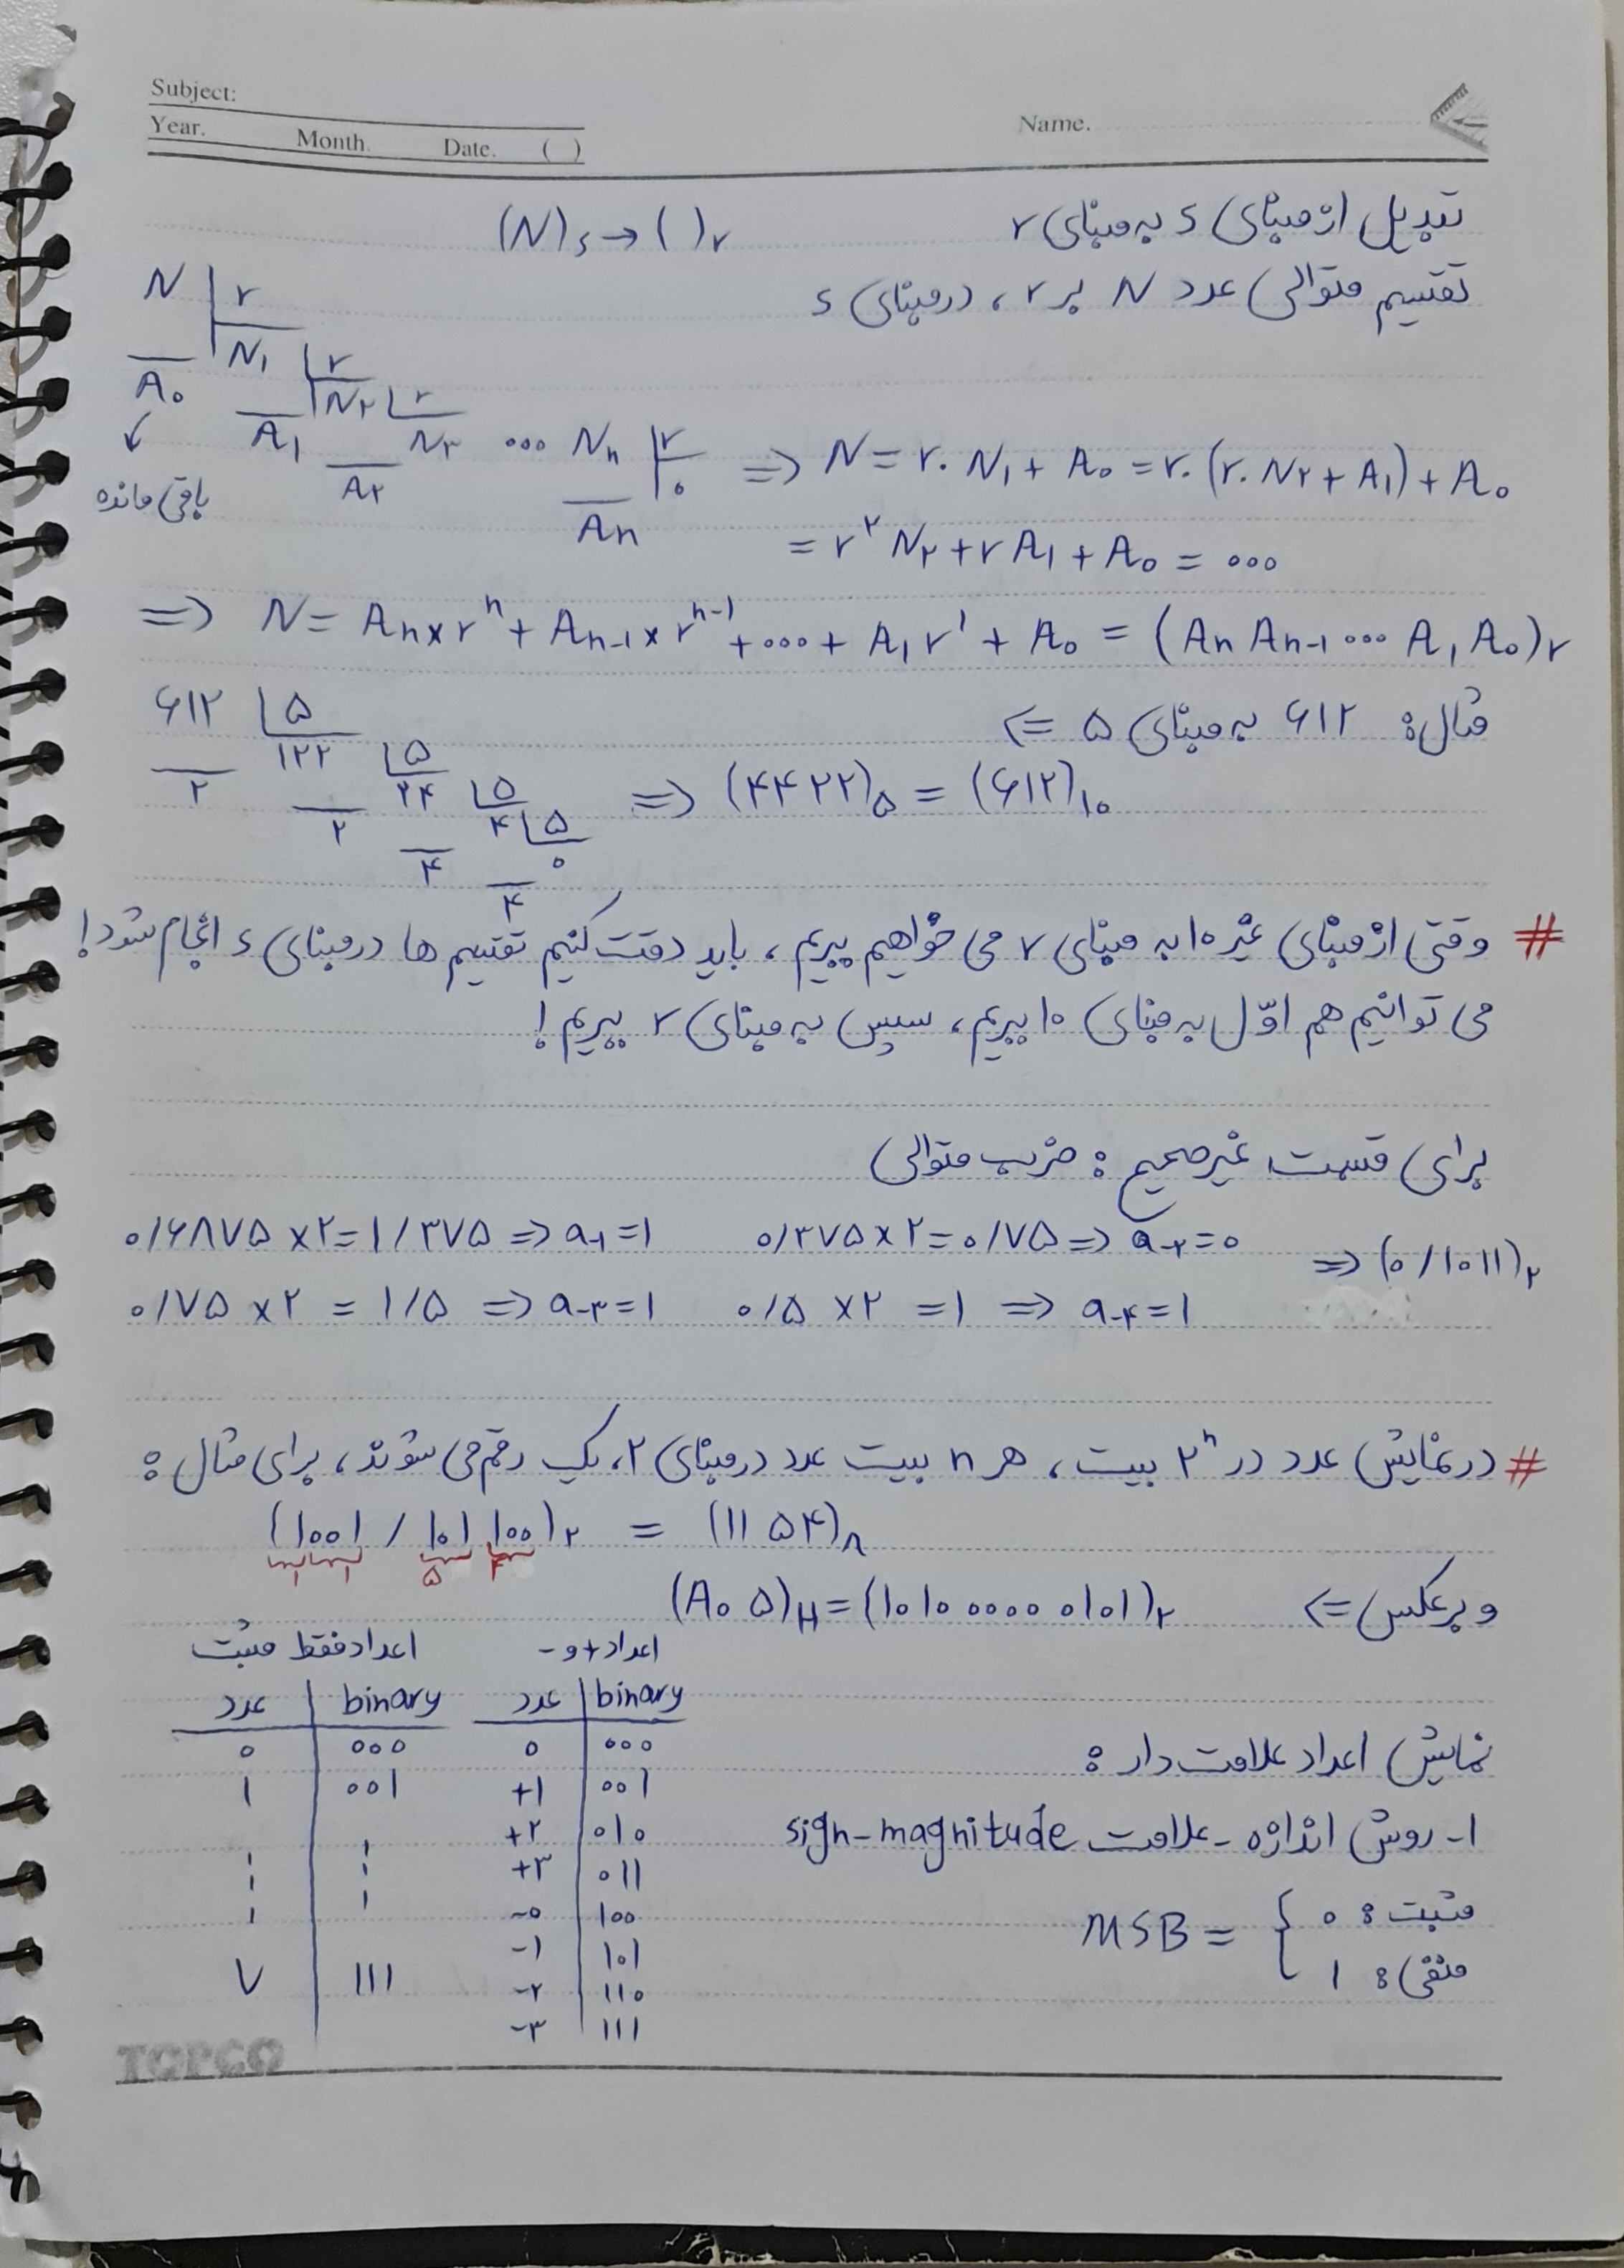 Subject:
Year. Month. Date. ( ) Name.
تبدیل از مبنای s به مبنای r (N)s → ( )r
تقسیم متوالی عدد N بر r، در مبنای s
N | r
N۱ | r
A۰
N۲ | r
A۱ N۳ ... Nn | r
A۲ ۰
An
باقی مانده
=> N = r. N۱ + A۰ = r. (r. N۲ + A۱) + A۰
= r^۲ N۲ + r A۱ + A۰ = ...
=> N = An × r^n + An-۱ × r^n-۱ + ... + A۱ r^۱ + A۰ = (An An-۱ ... A۱ A۰)r
مثال: ۶۱۲ به مبنای ۵ <=
۶۱۲ | ۵
۱۲۲ | ۵
۲ ۲۴ | ۵
۲ ۴ | ۵
۴ ۰
۴
=> (۴۴۲۲)۵ = (۶۱۲)۱۰
# وقتی از مبنای غیر ۱۰ به مبنای r می خواهیم ببریم، باید دقت کنیم تقسیم ها در مبنای s انجام شود!
می توانیم هم اوّل به مبنای ۱۰ ببریم، سپس به مبنای r ببریم!
برای قسمت غیرصحیح: ضرب متوالی
۰/۶۸۷۵ × ۲ = ۱/۳۷۵ => a-۱ = ۱ ۰/۳۷۵ × ۲ = ۰/۷۵ => a-۲ = ۰ => (۰/۱۰۱۱)۲
۰/۷۵ × ۲ = ۱/۵ => a-۳ = ۱ ۰/۵ × ۲ = ۱ => a-۴ = ۱
# در نمایش عدد در ۲^n بیت، هر n بیت عدد در مبنای ۲، یک رقم می شوند، برای مثال:
(۱۰۰۱ / ۱۰۱ ۱۰۰)۲ = (۱۱ ۵۴)۸
۱ ۱ ۵ ۴
و برعکس <= (A۰ ۵)H = (۱۰۱۰ ۰۰۰۰ ۰۱۰۱)۲
اعداد فقط مثبت اعداد + و -
عدد | binary عدد | binary
۰ | ۰۰۰ ۰ | ۰۰۰
۱ | ۰۰۱ +۱ | ۰۰۱
+۲ | ۰۱۰
+۳ | ۰۱۱
-۰ | ۱۰۰
-۱ | ۱۰۱
۷ | ۱۱۱ -۲ | ۱۱۰
-۳ | ۱۱۱
نمایش اعداد علامت دار:
۱- روش اندازه - علامت sign-magnitude
MSB = { مثبت: ۰
منفی: ۱
TOPCO